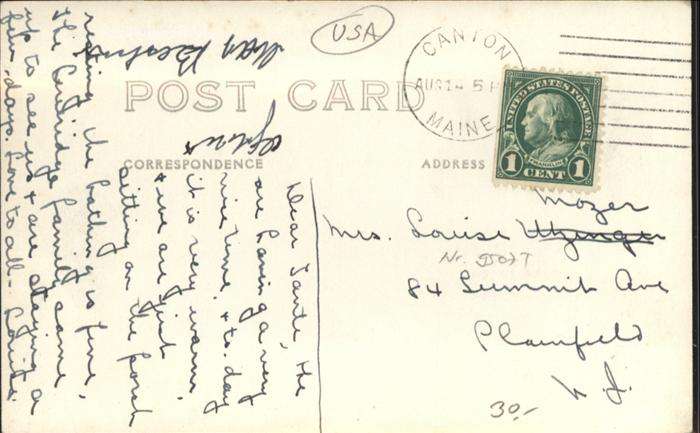 USA
CANTON
AUG 14 5 P
MAINE
UNITED STATES POSTAGE
FRANKLIN
1 CENT 1
POST CARD
CORRESPONDENCE
ADDRESS
Dear Tante, We
are having a very
nice time. + to-day
it is very warm
+ we are just
sitting on the porch
resting the bathing is fine,
the family came
up to see us + are staying a
few days. Love to all - Louise.
Mozer
Mrs. Louise Utzinger
84 Summit Ave
Plainfield
N. J.
30,-